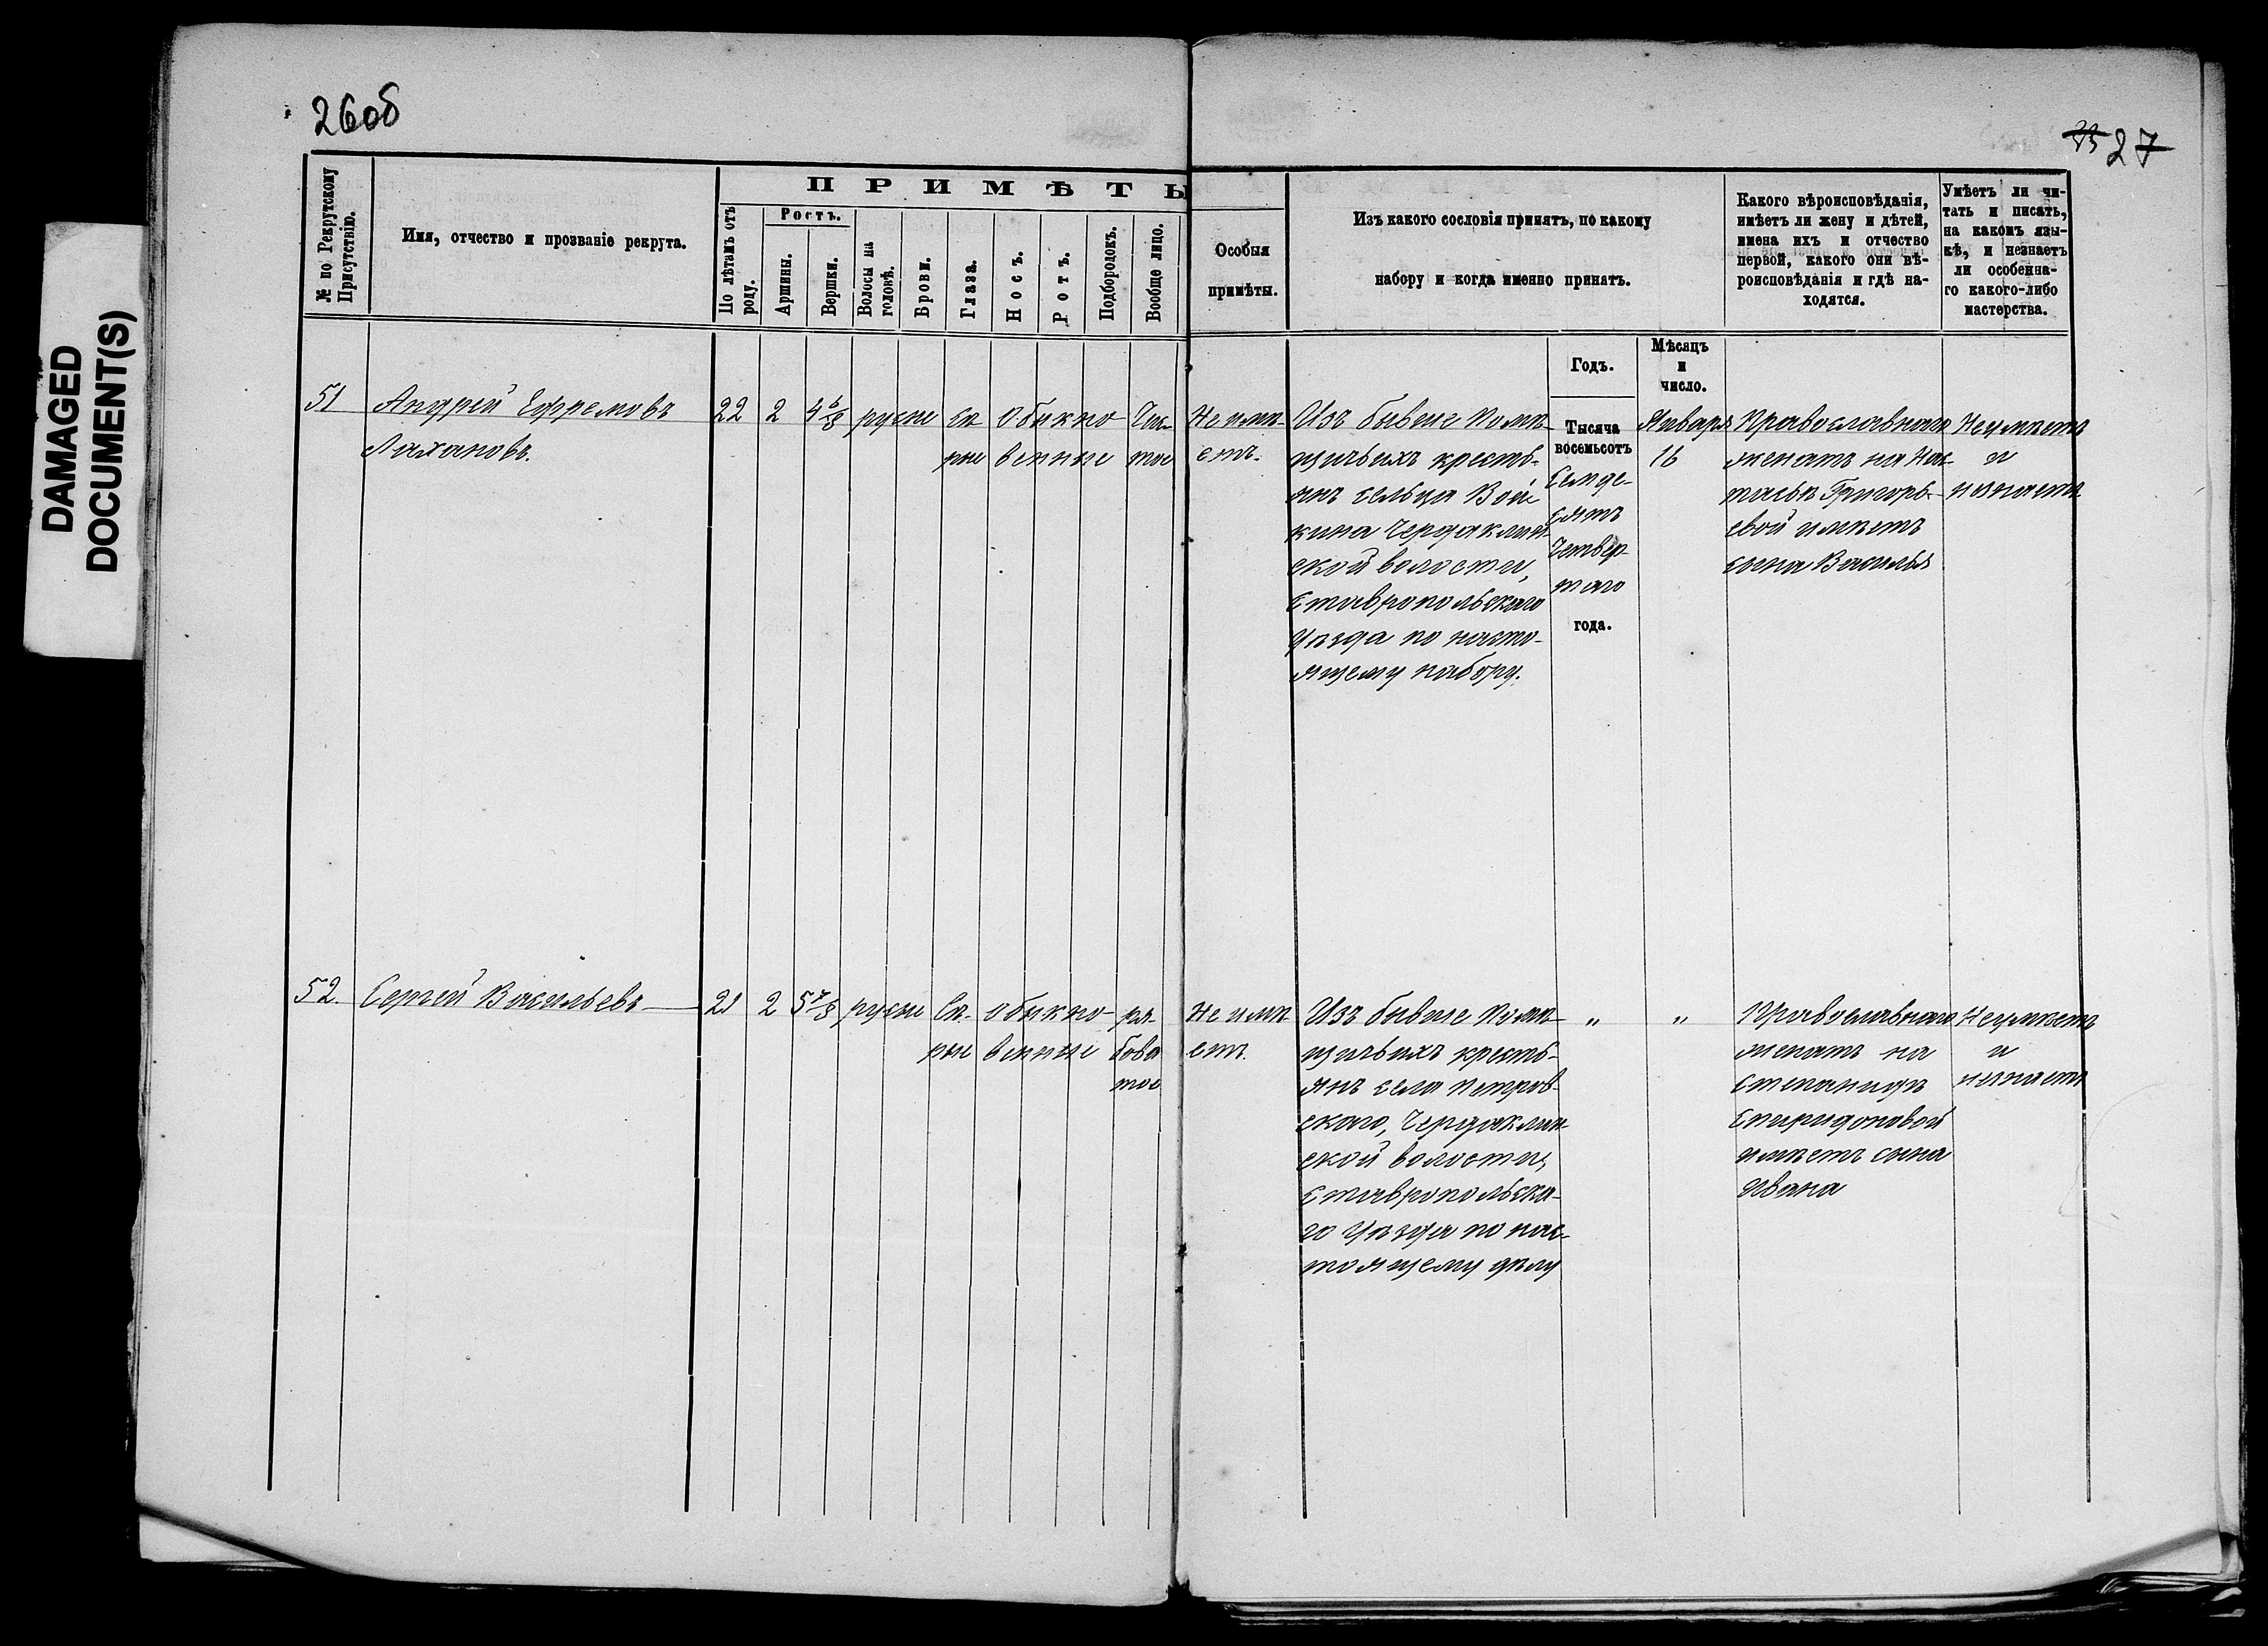 DAMAGED
DOCUMENT(S)
26об
27
ПРИМѢТЫ
№ по Рекрутскому
Присутствію.
Имя, отчество и прозваніе рекрута.
По лѣтамъ отъ
роду.
Ростъ.
Аршины.
Вершки.
Волосы на
головѣ.
Брови.
Глаза.
Носъ.
Ротъ.
Подбородокъ.
Вообще лицо.
Особыя
примѣты.
Изъ какого сословія принятъ, по какому
набору и когда именно принятъ.
Какого вѣроисповѣданія,
имѣетъ ли жену и дѣтей,
имена ихъ и отчество
первой, какого они вѣ-
роисповѣданія и гдѣ на-
ходятся.
Умѣетъ ли чи-
тать и писать,
на какомъ язы-
кѣ, и незнаетъ
ли особенна-
го какого-либо
мастерства.
Годъ.
Мѣсяцъ
и
число.
51
Андрей Ефремовъ
Лахановъ.
22
2
русые
Сѣ
рые
Обыкно
венные
Чис-
тое
Не имѣ-
етъ.
Изъ бывше помѣ-
щичьихъ кресть-
янъ сельца Вой
кина Чердаклин-
ской волости,
Ставропольскаго
уѣзда по насто-
ящему набору.
Тысяча
восемьсотъ
Семде-
сятъ
Четвер-
таго
года.
Января
16
Православнаго
женатъ на Нас-
тасьѣ Григорь-
евой имѣетъ
сына Василья
Неумѣетъ
и
незнаетъ
52.
Сергей Васильевъ
21
2
5 7/8
русые
Сѣ-
рые
обыкно-
венные
ря-
бова
тое
Не имѣ
етъ.
Изъ бывше помѣ-
щичьихъ кресть-
янъ села Петров-
скаго, Чердаклин-
ской волости,
Ставропольска-
го уѣзда по нас-
тоящему дѣлу
"
"
Православнаго
женатъ на
Степанидѣ
Спиридоновой
имѣетъ сына
Ивана
Неумѣетъ
и
незнаетъ